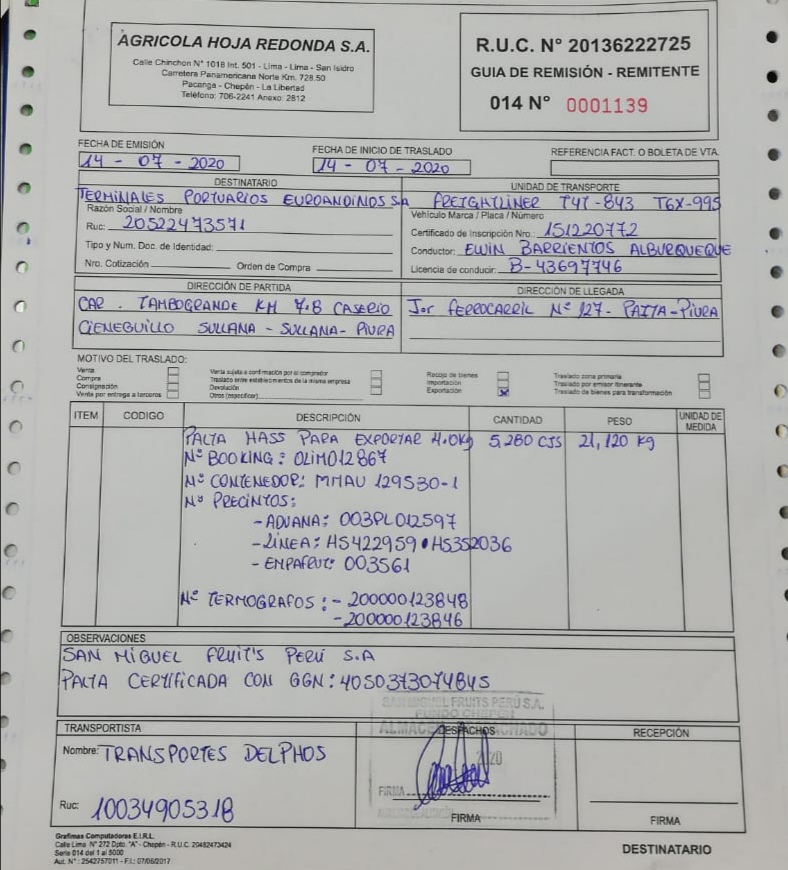 AGRICOLA HOJA REDONDA S.A.
Calle Chinchon N° 1018 Int. 501 - Lima - Lima - San Isidro
Carretera Panamericana Norte Km. 728.50
Pacanga - Chepén - La Libertad
Teléfono: 706-2241 Anexo: 2812
R.U.C. N° 20136222725
GUIA DE REMISIÓN - REMITENTE
014 N° 0001139
FECHA DE EMISIÓN
14 - 07 - 2020
FECHA DE INICIO DE TRASLADO
14 - 07 - 2020
REFERENCIA FACT. O BOLETA DE VTA.
DESTINATARIO
TERMINALES PORTUARIOS EUROANDINOS SA
Razón Social / Nombre
Ruc: 20522473571
Tipo y Num. Doc. de Identidad:
Nro. Cotización Orden de Compra
UNIDAD DE TRANSPORTE
FREIGHTLINER T4T-843 T6X-995
Vehículo Marca / Placa / Número
Certificado de Inscripción Nro.: 151220772
Conductor: EWIN BARRIENTOS ALBURQUEQUE
Licencia de conducir: B-43697746
DIRECCIÓN DE PARTIDA
CAR. TAMBOGRANDE KM 7.8 CASERIO
CIENEGUILLO SULLANA - SULLANA - PIURA
DIRECCIÓN DE LLEGADA
Jor FERROCARRIL Nº 127 - PAITA - PIURA
MOTIVO DEL TRASLADO:
Venta
Compra
Consignación
Venta por entrega a terceros
Venta sujeta a confirmación por el comprador
Traslado entre establecimientos de la misma empresa
Devolución
Otros (especificar)
Recojo de bienes
Importación
Exportación X
Traslado zona primaria
Traslado por emisor itinerante
Traslado de bienes para transformación
ITEM CODIGO DESCRIPCIÓN CANTIDAD PESO UNIDAD DE MEDIDA
PALTA HASS PARA EXPORTAR 4.0Kg 5,280 CJS 21,120 Kg
Nº BOOKING: OLIM012867
Nº CONTENEDOR: MMAU 129530-1
Nº PRECINTOS:
- ADUANA: 003PL012597
- LÍNEA: HS422959 • HS352036
- EMPAFRUT: 003561
Nº TERMOGRAFOS: - 200000123848
- 200000123846
OBSERVACIONES
SAN MIGUEL FRUIT'S PERÚ S.A
PALTA CERTIFICADA CON GGN: 4050373074845
SAN MIGUEL FRUITS PERÚ S.A.
FUNDO CHEPEN
DESPACHOS
2020
FIRMA
TRANSPORTISTA
Nombre: TRANSPORTES DELPHOS
Ruc: 10034905318
FIRMA
RECEPCIÓN
FIRMA
Grafimas Computadoras E.I.R.L.
Calle Lima N° 272 Dpto. "A" - Chepén - R.U.C. 20482473424
Serie 014 del 1 al 5000
Aut. N° : 2542757011 - F.I.: 07/06/2017
DESTINATARIO